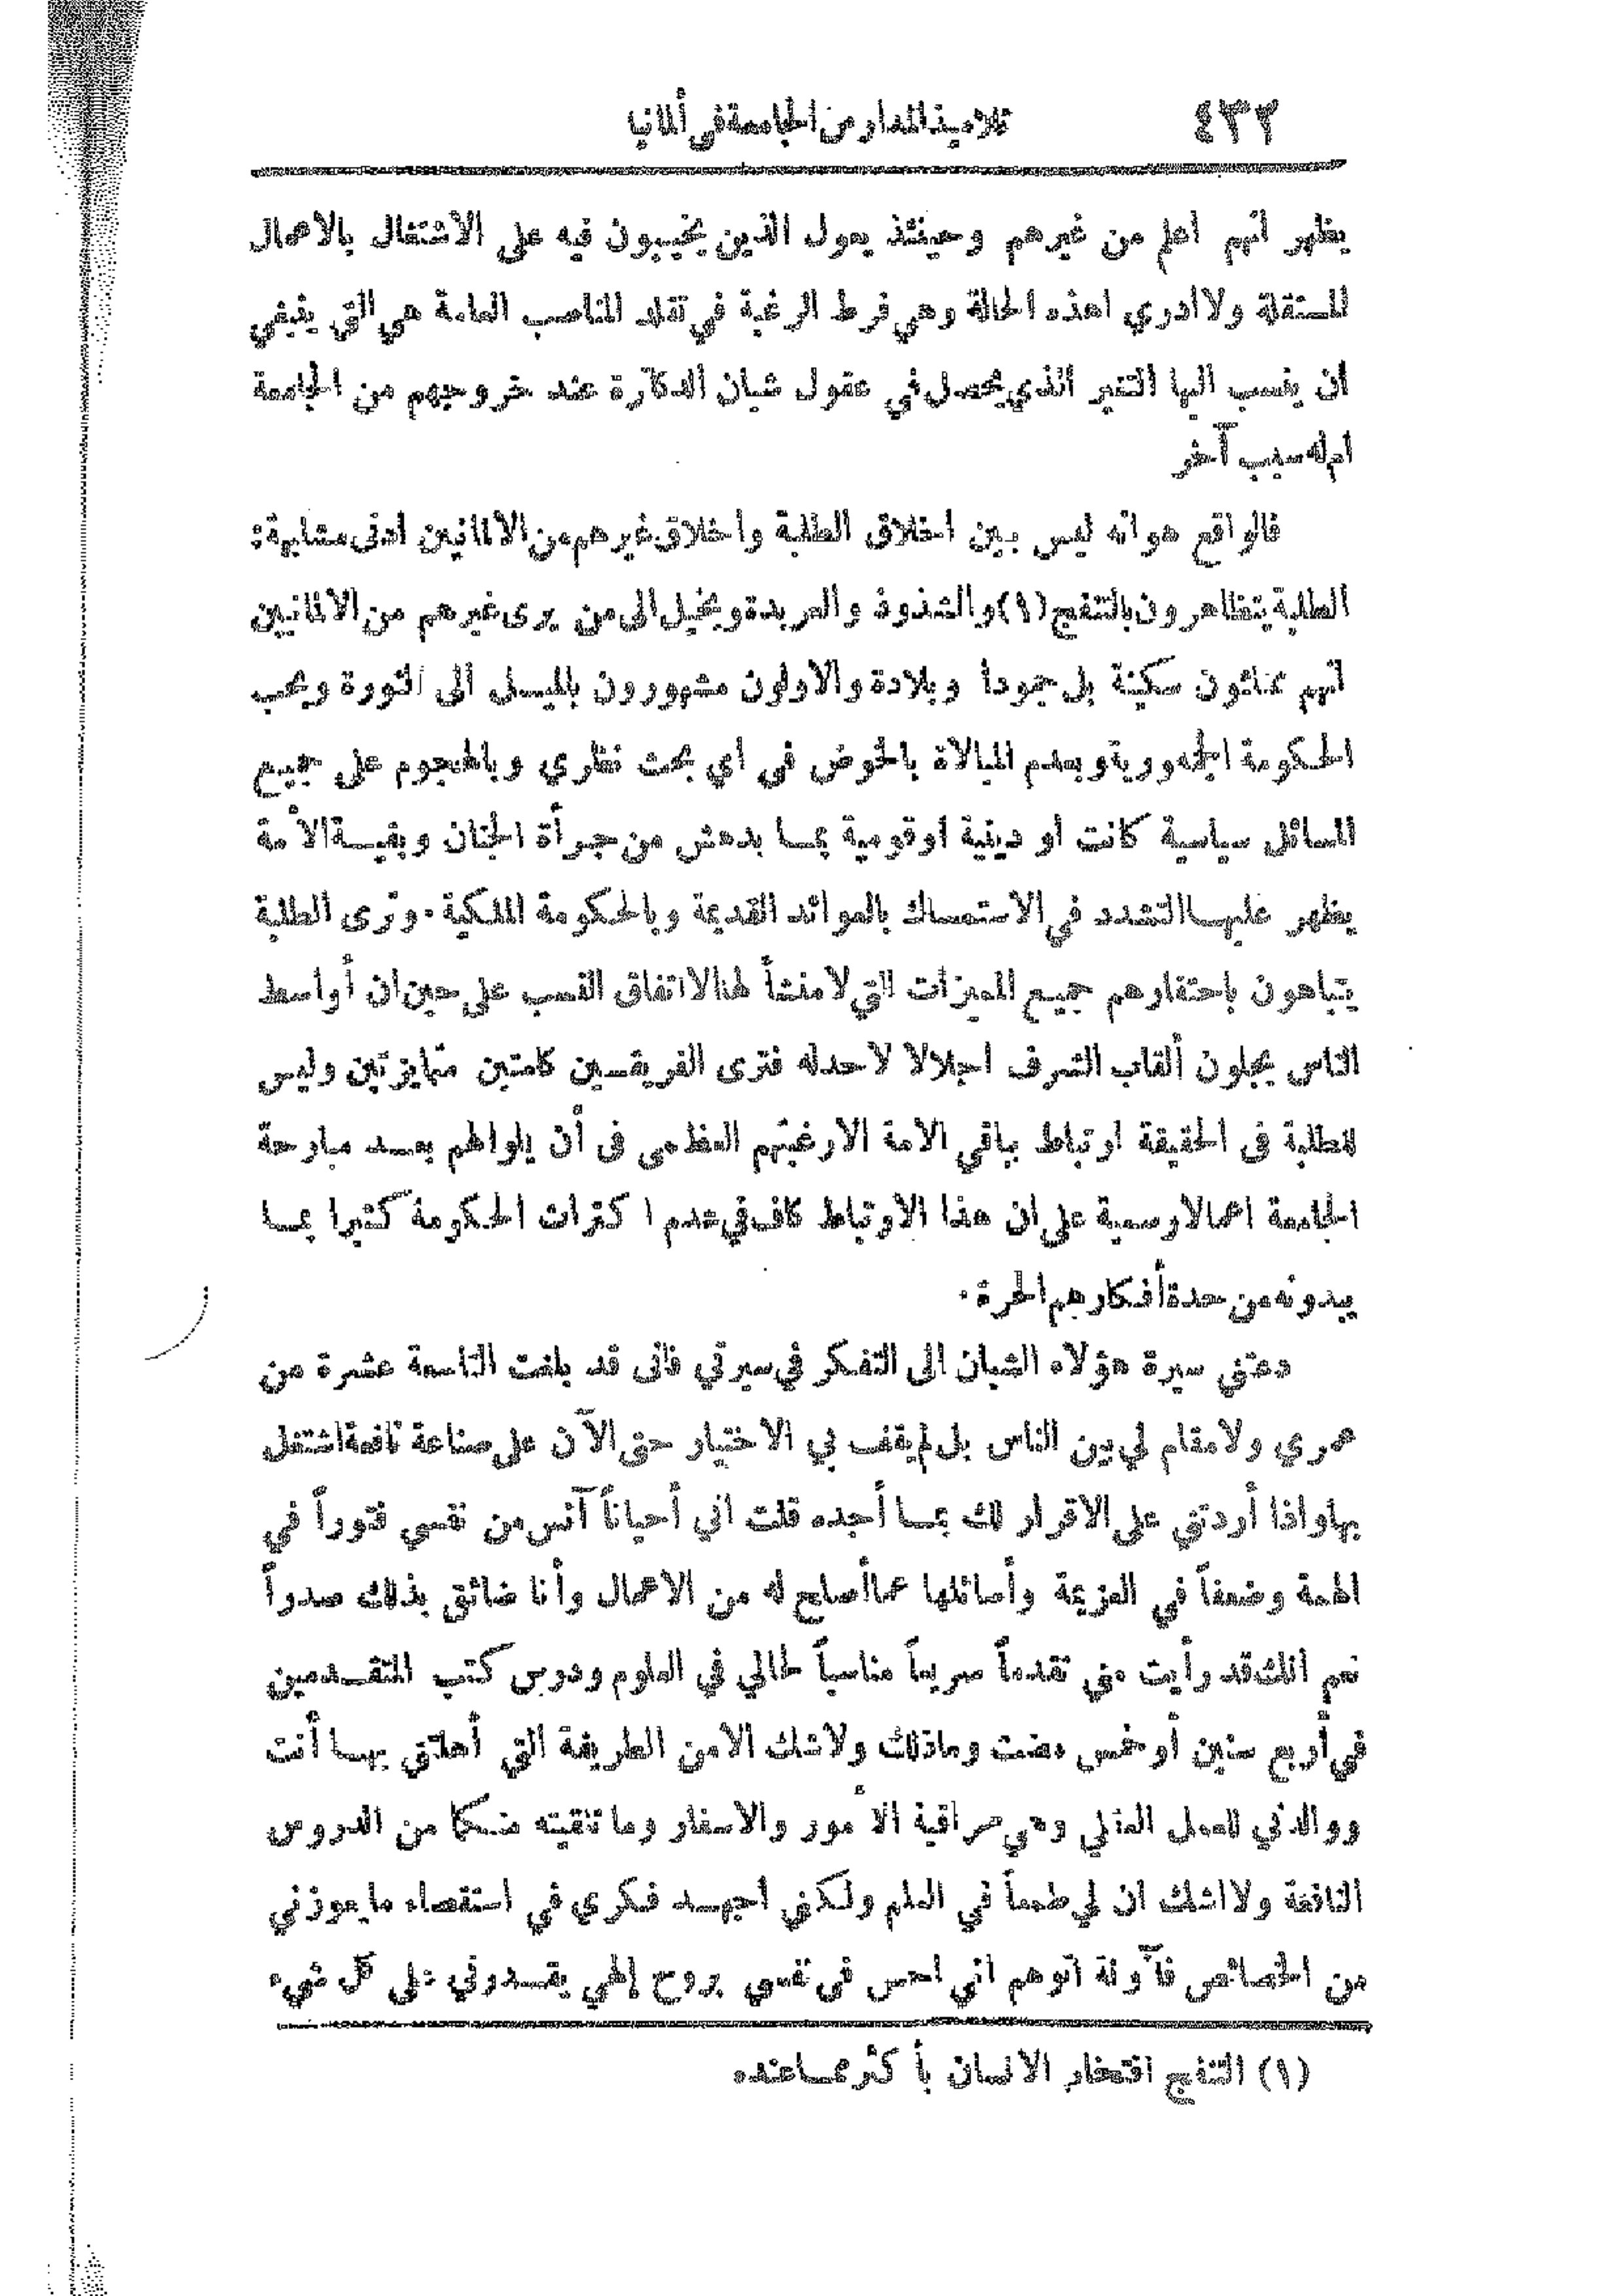 ٤٣٢
تلاميذ المدارس الجامعة في ألمانيا
يظهر انهم اعلم من غيرهم وحينئذ يعول الذين يخيبون فيه على الاشتغال بالاعمال
المستقلة ولا أدري اهذه الحالة وهي فرط الرغبة في تقلد المناصب العامة هي التي ينبغي
ان ينسب اليها التغير الذي يحصل في عقول شبان الدكاترة عند خروجهم من الجامعة
ام له سبب آخر
فالواقع هو انه ليس بين اخلاق الطلبة واخلاق غيرهم من الالمانيين ادنى مشابهة:
الطلبة يتظاهرون بالتنفج (١) والشذوذ والعربدة ويخيل الى من يرى غيرهم من الالمانيين
انهم يمتلئون سكينة بل جمودا وبلادة والاولون مشهورون بالميل الى الثورة وبحب
الحكومة الجمهورية وبعدم المبالاة بالخوض في اي بحث نظري وبالهجوم على جميع
المسائل سياسية كانت او دينية او قومية بما يدهش من جرأة الجنان وبقية الأمة
يظهر عليها التشدد في الاستمساك بالعوائد القديمة وبالحكومة الملكية ٠ وترى الطلبة
يتباهون باحتقارهم جميع المميزات التي لا منشأ لها الا اتفاق النسب على حين ان أواسط
الناس يجلون ألقاب الشرف اجلالا لا حد له فترى الفريقين كامتين متمايزتين وليس
للطلبة فى الحقيقة ارتباط بباقي الامة الا رغبتهم العظمى فى أن يلوا لهم بعد مبارحة
الجامعة اعمالا رسمية على ان هذا الارتباط كاف في عدم اكتراث الحكومة كثيرا بما
يبدونه من حدة أفكارهم الحرة ٠
دعتني سيرة هؤلاء الشبان الى التفكر في سيرتي فانى قد بلغت التاسعة عشرة من
عمري ولا مقام لي بين الناس بل لم يقف بي الاختيار حتى الآن على صناعة نافعة اشتغل
بها واذا أردتني على الاقرار لك بما أجده قلت اني أحياناً آنس من نفسي فتوراً في
الهمة وضعفاً في العزيمة وأسائلها عما أصلح له من الاعمال وأنا ضائق بذلك صدراً
نعم انك قد رأيت مني تقدماً سريعاً مناسباً لحالي في العلوم ودرس كتب المتقدمين
في أربع سنين أو خمس مضت وما ذلك ولا شك الا من الطريقة التي أهلتني بها أنت
ووالدتي للعمل العقلي وهي مراقبة الأمور والاسفار وما تلقيته منكما من الدروس
النافعة ولا اشك ان لي طمعاً في العلم ولكني اجهد فكري في استقصاء ما يعوزني
من الخصائص فآونة اتوهم اني احس فى نفسي بروح إلهي يقدرني على كل شيء
(١) التنفج افتخار الانسان بأكثر مما عنده